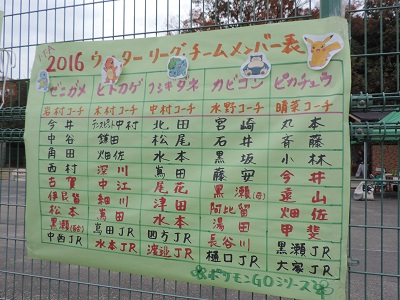 2016 ウィンターリーグチームメンバー表
ゼニガメ ヒトカゲ フシギダネ カビゴン ピカチュウ
岩村コーチ 木村コーチ 中村コーチ 水野コーチ 晴菜コーチ
今井 中村 北田 宮崎 丸本
中谷 鎌田 松尾 石井 斉藤
角田 畑佐 水本 黒坂 小林
西村 深川 嶌田 藤安 今井
古賀 中江 尾花 黒瀬(母) 遠山
伊良留 細川 津田 阿比留 畑佐
松本 嶌田 水本 湯田 甲斐
黒瀬 嶌田JR 四方JR 長谷川 黒瀬JR
中西JR 水本JR 渡辺JR 樋口JR 大家JR
ポケモンGOシリーズ